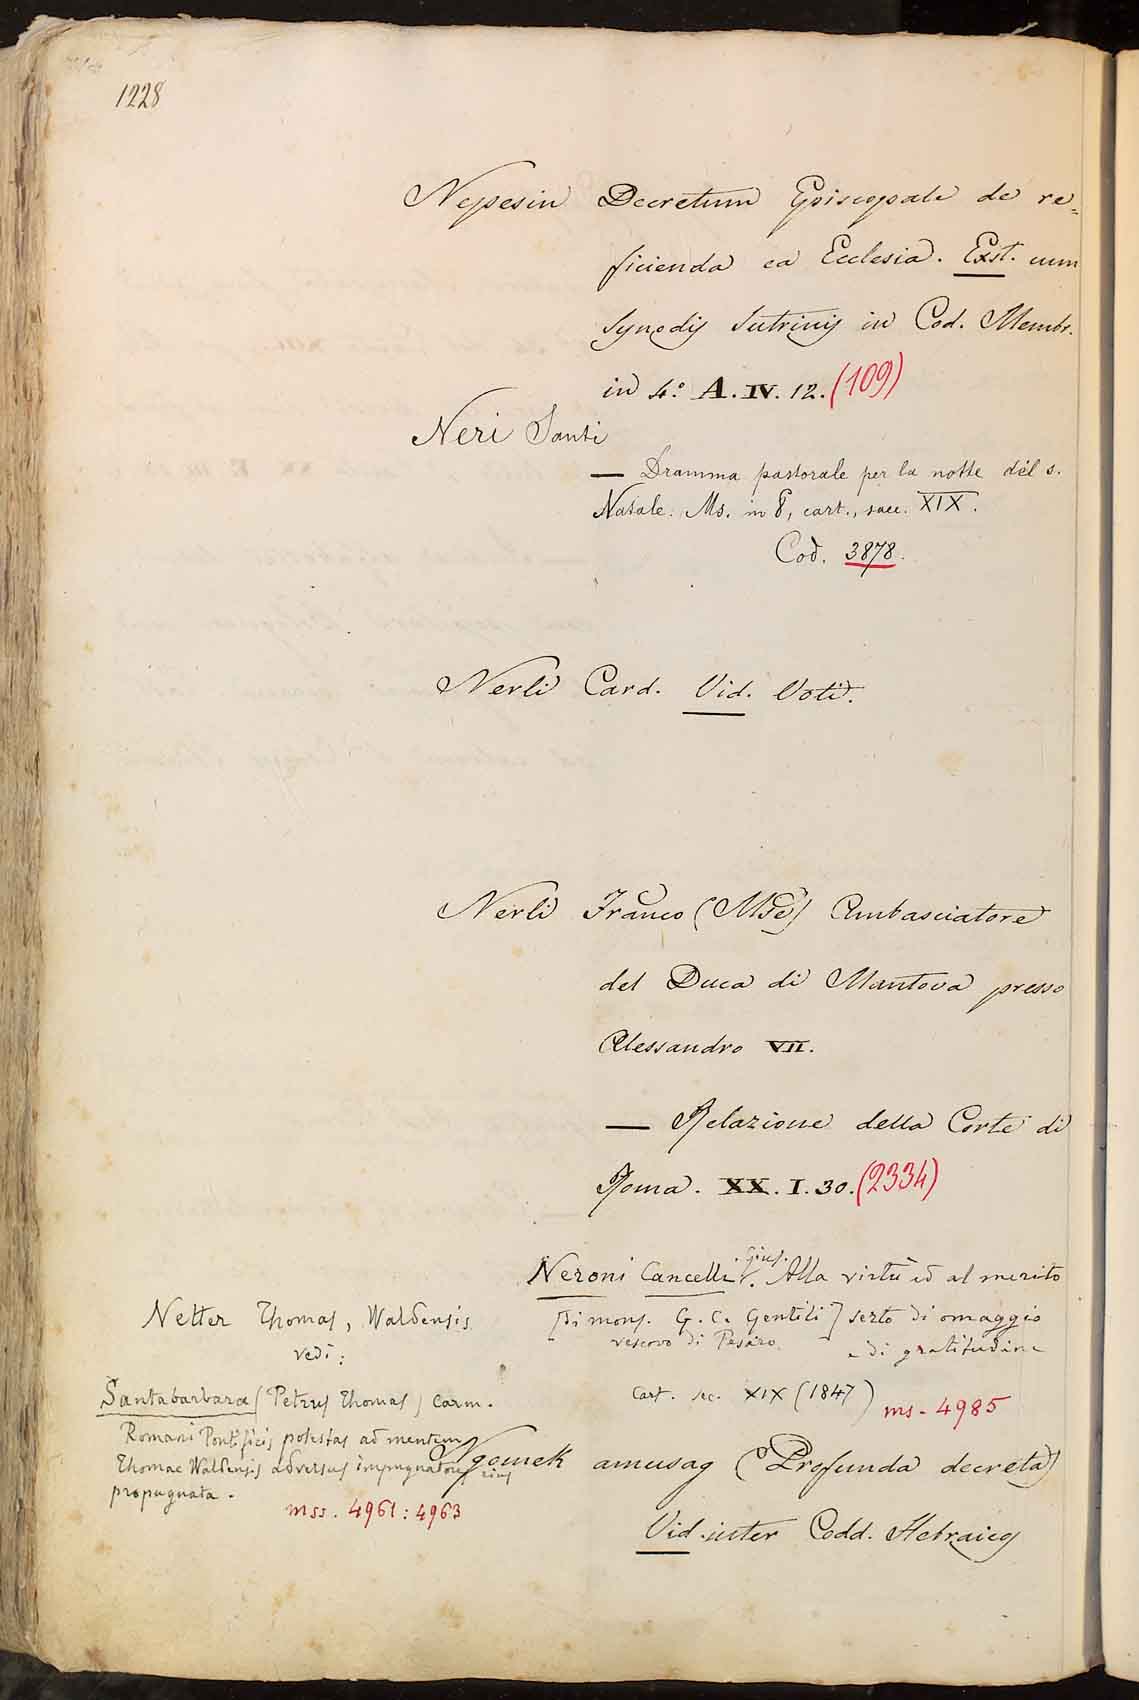 1228
Nepesin Decretum Episcopale de re=
ficienda ea Ecclesia. Exst. cum
Synodis Sutrinis in Cod. Membr.
in 4.º A. IV. 12. (109)
Neri Santi
— Dramma pastorale per la notte del s.
Natale. Ms. in 8, cart., saec. XIX.
Cod. 3878.
Nerli Card. Vid. Voti.
Nerli Franco (Mse) Ambasciatore
del Duca di Mantova presso
Alessandro VII.
— Relazione della Corte di
Roma. XX. I. 30. (2334)
Neroni Cancelli Gius. Alla virtù ed al merito
[di mons. G. C. Gentili] serto di omaggio
vescovo di Pesaro e di gratitudine
Cart. sec. XIX (1847) ms. 4985
Netter Thomas, Waldensis
vedi:
Santabarbara (Petrus Thomas) Carm.
Romani Pontificis potestas ad mentem
Thomae Waldensis adversus impugnatores eius
propugnata.
mss. 4961: 4963
Ngomek amusag (Profunda decreta)
Vid. inter Codd. Hebraicos